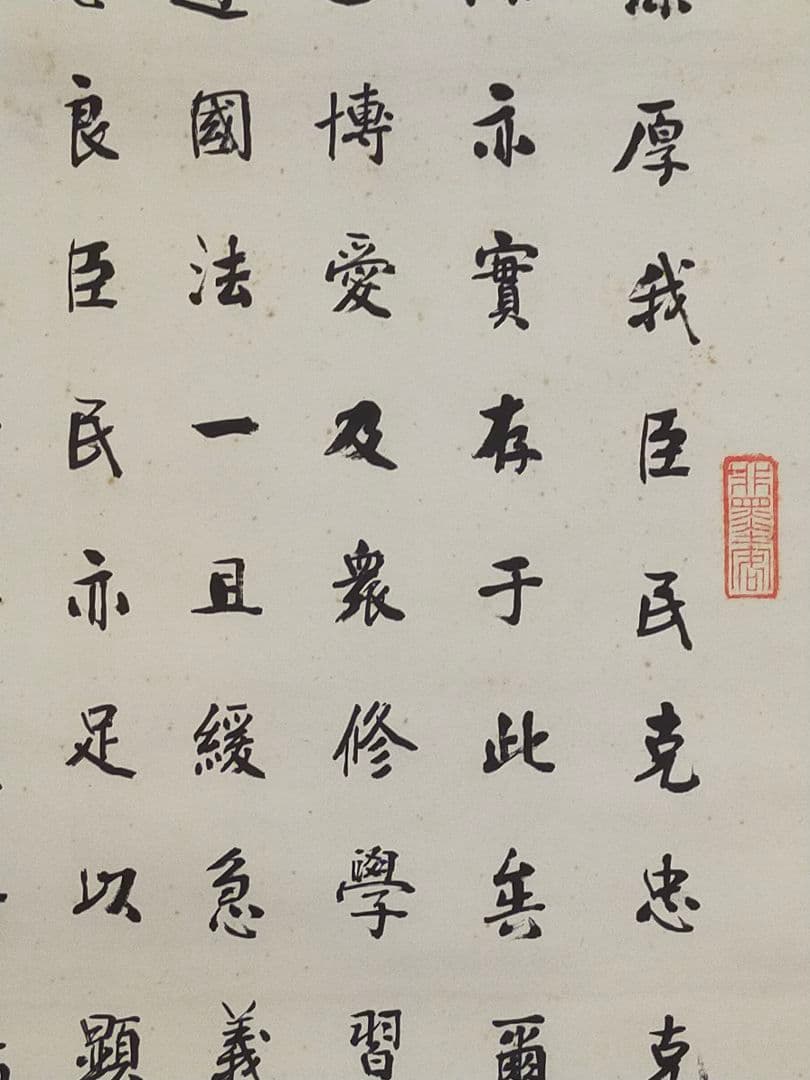 厚我臣民克忠克
亦實存于此矣爾
博愛及衆修學習
國法一且緩急義
良臣民亦足以顯